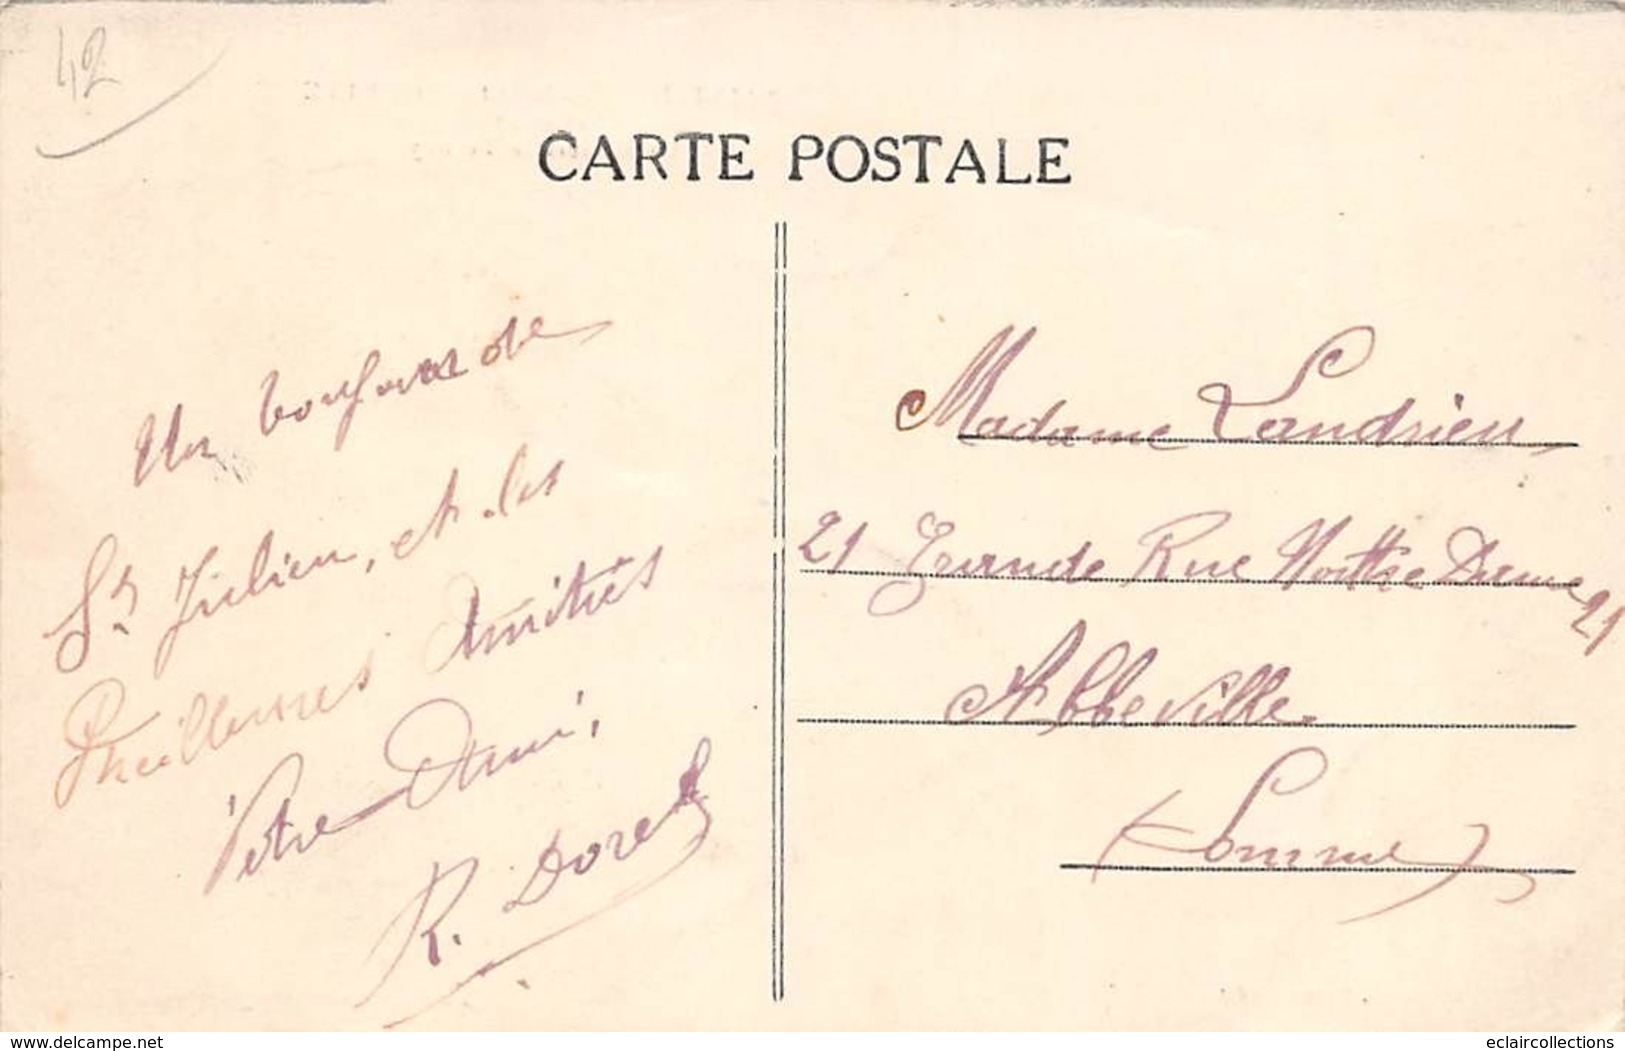 42
CARTE POSTALE
Un bonjour de
St Julien, et les
Meilleures Amitiés
Votre Ami,
R. Dorel
Madame Landrieu
21 Grande Rue Nottre Dame 21
Abbeville
(Somme)
www.delcampe.net
eclaircollections